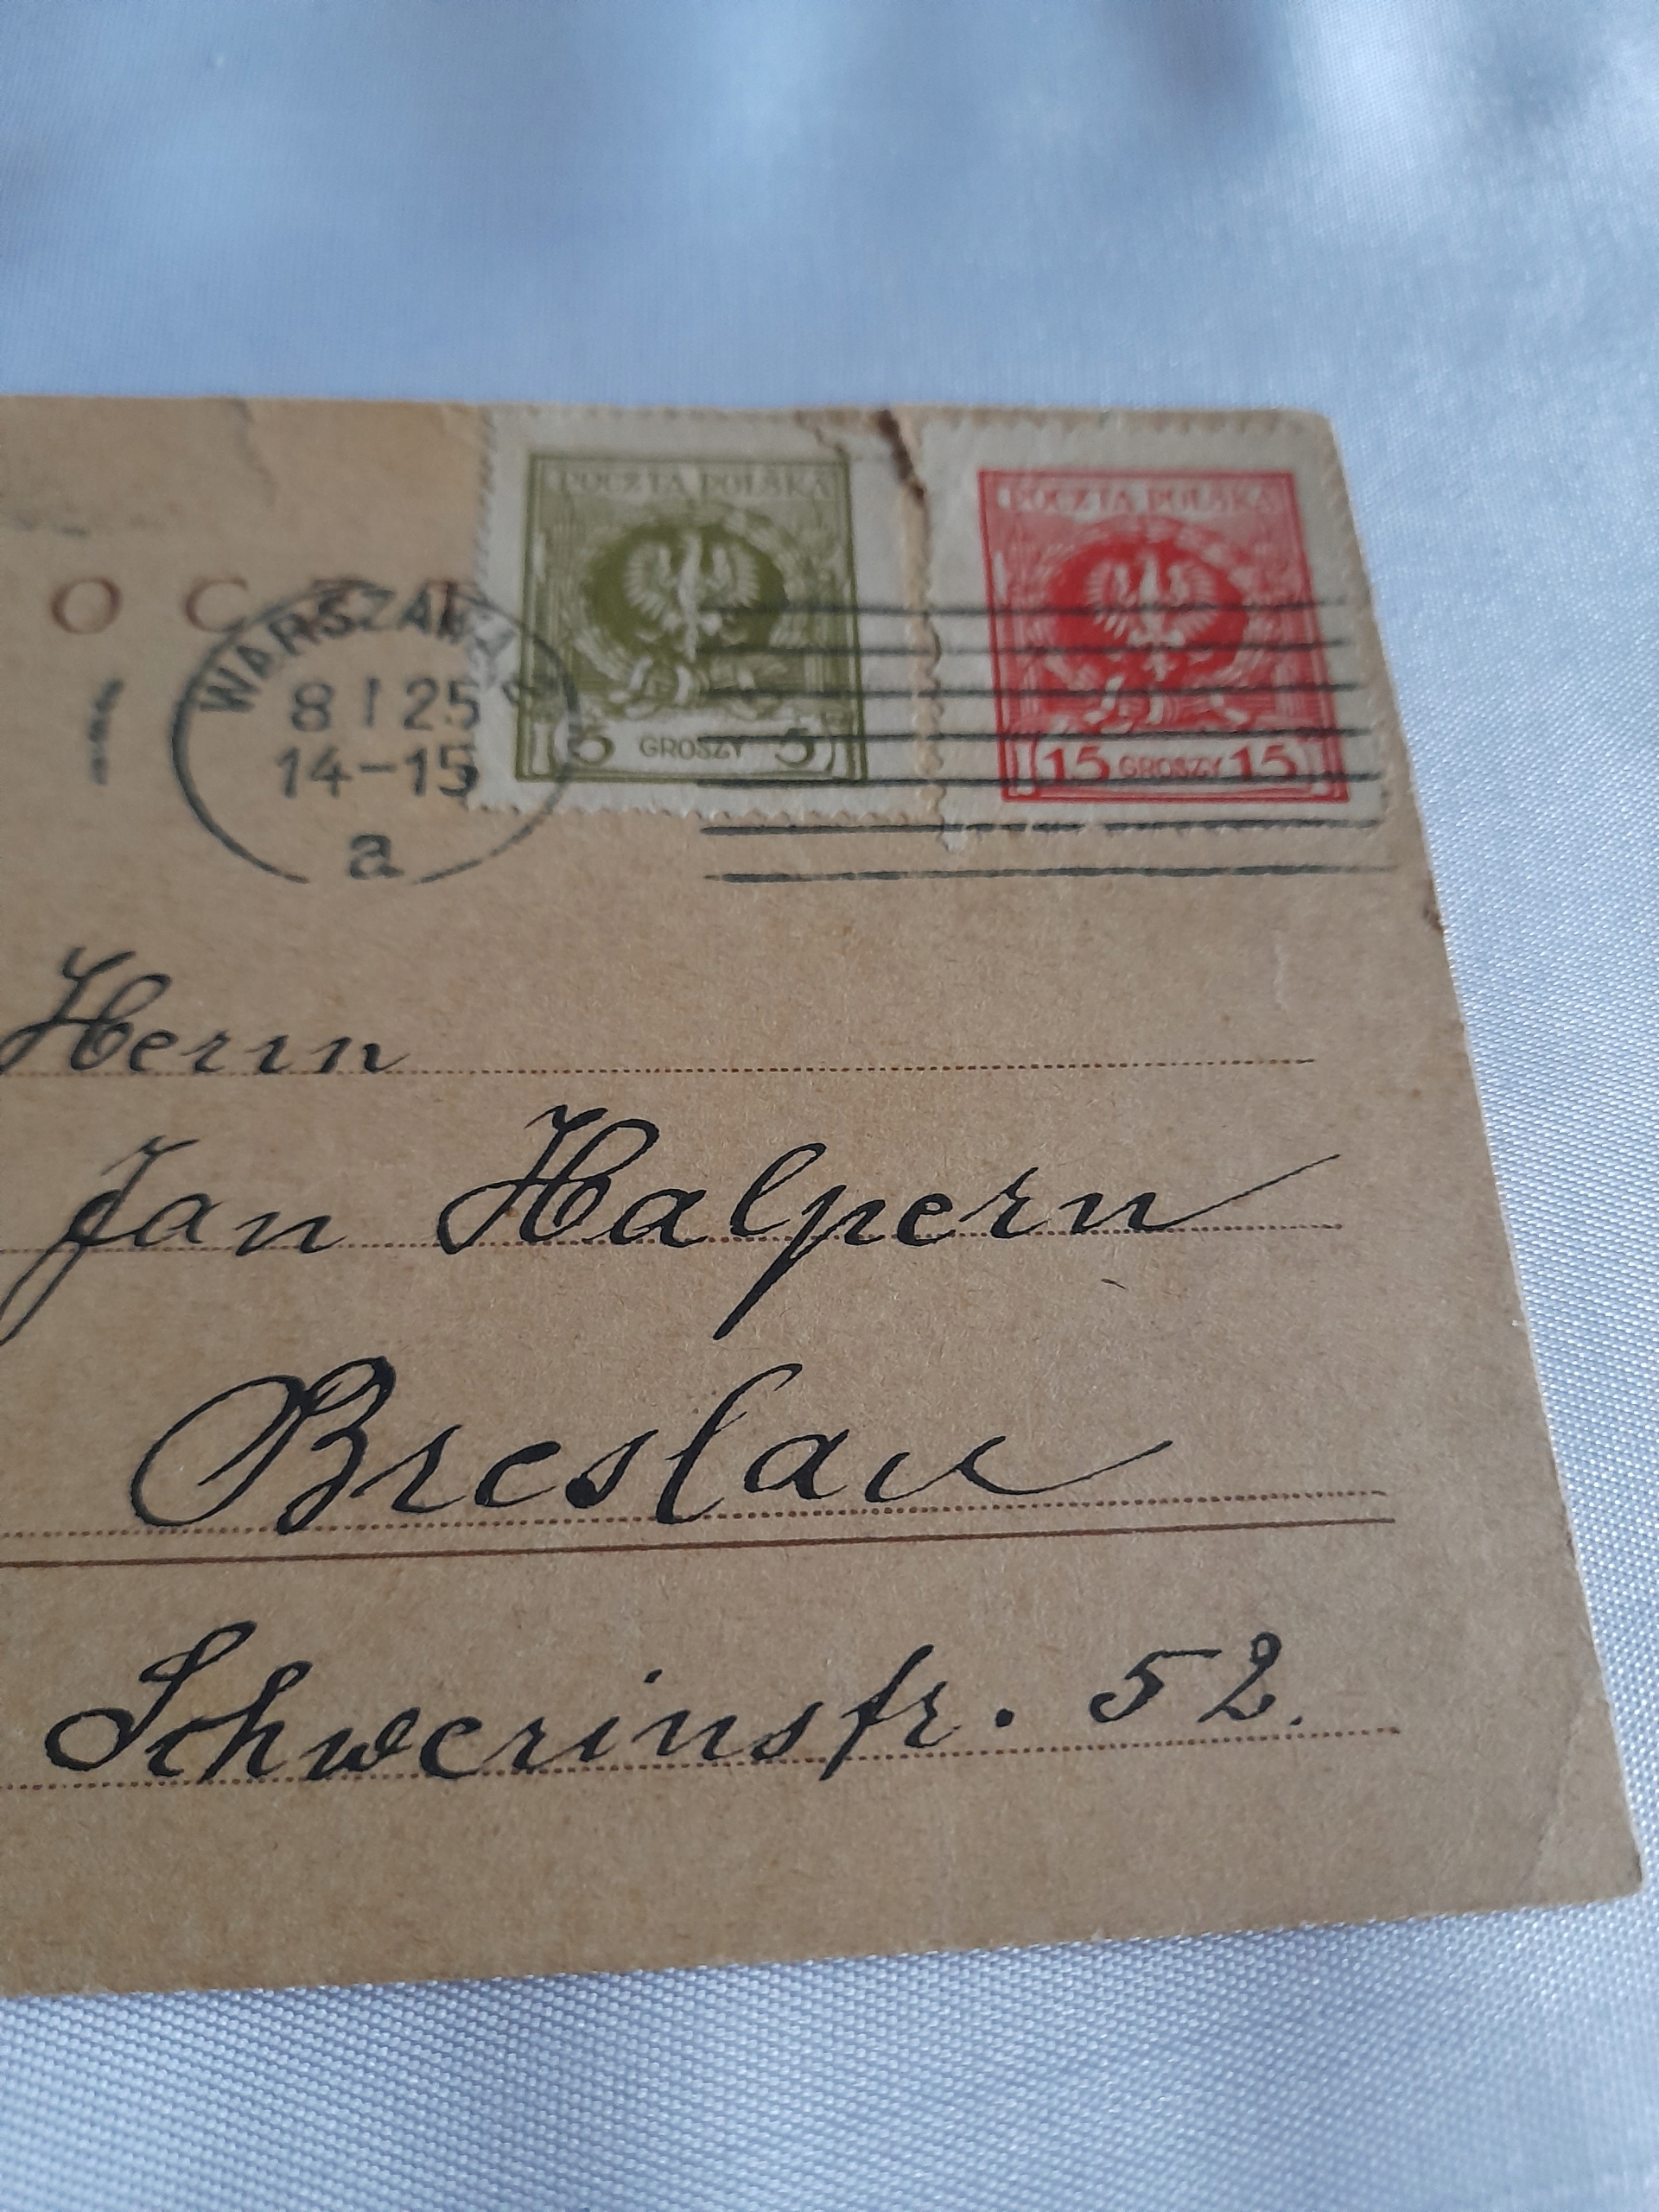 POCZTA POLSKA POCZTA POLSKA
O C
WARSZAWA 2
8 I 25
14-15
a
5 GROSZY 5 15 GROSZY 15
Herrn
Jan Halpern
Breslau
Schwerinstr. 52.